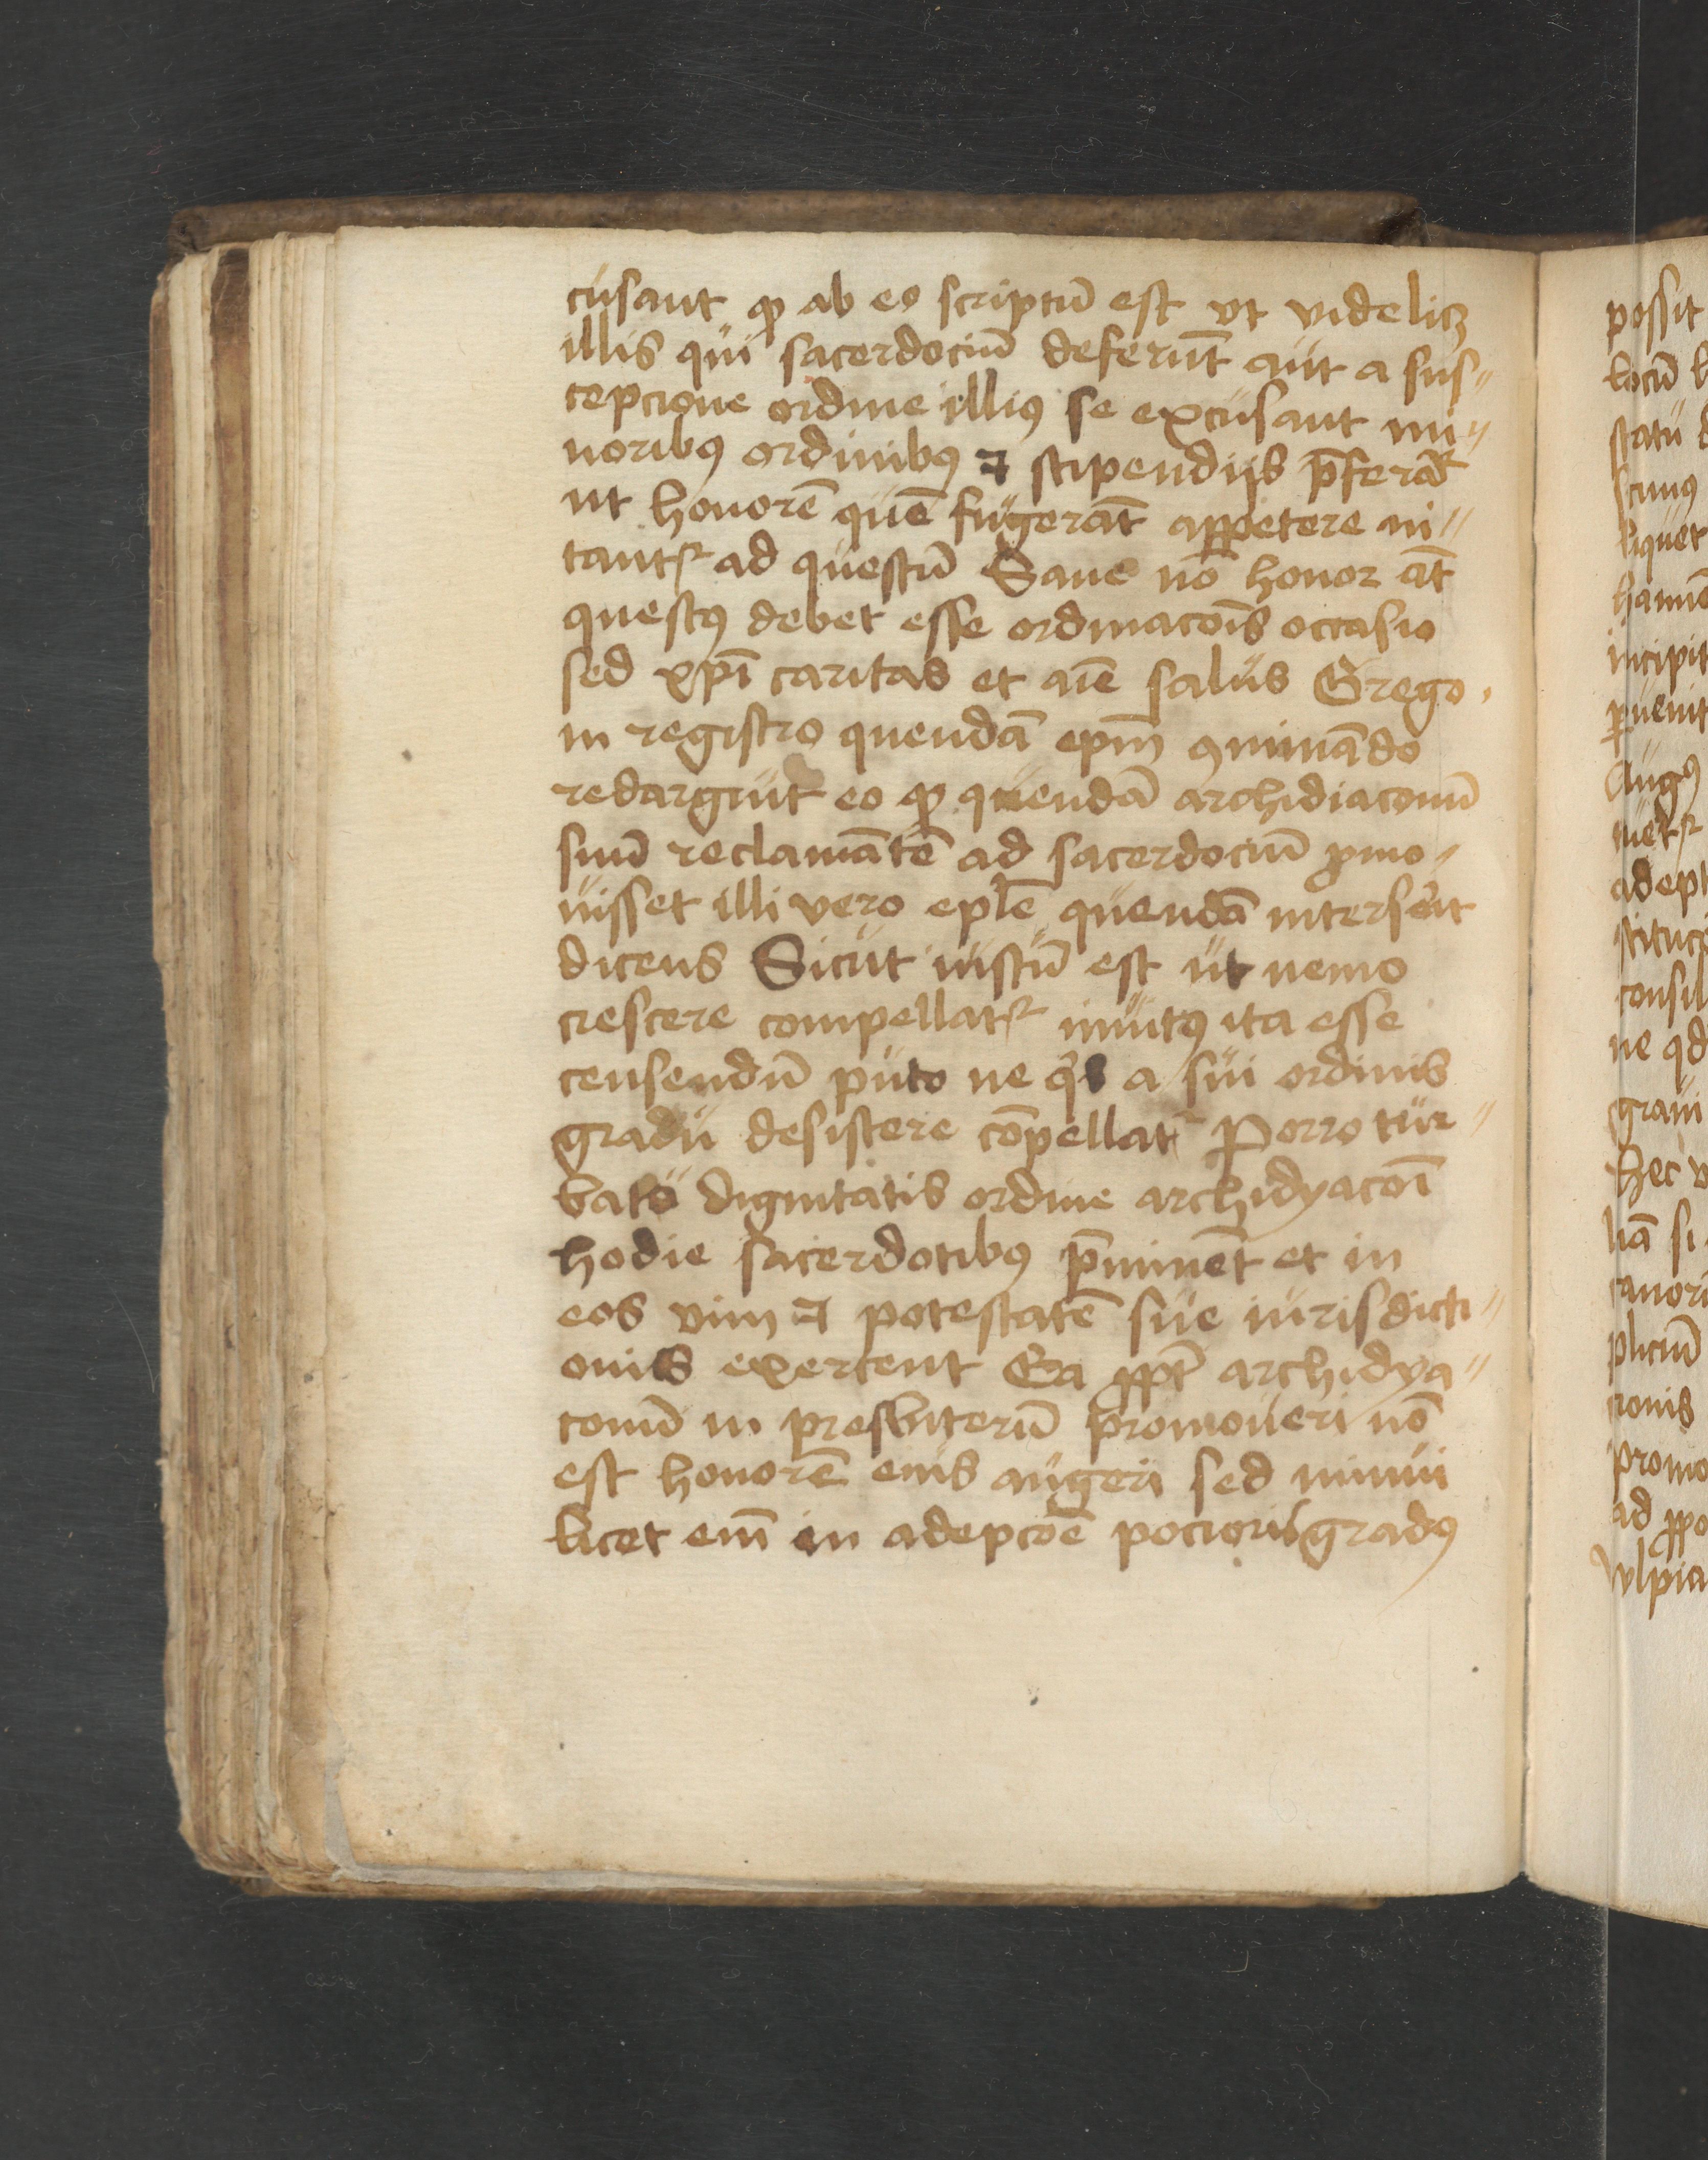 cusant ꝙ ab eo scriptū est vt videlicꝫ
illis qui sacerdociū deferūt aut a sus〃
cepcione ordine illiꝰ se excusant mi〃
noribꝰ ordinibꝰ ⁊ stipendijs p̄ferāt
ut honorē quē fugerāt appetere ni〃
tantr ad questū Sane nō honor āt
questꝰ debet esse ordinacōis occasio
sed xpī caritas et aīe salus Grego.
in registro quendā epm̄ ꝯminādo
redarguit eo ꝙ quendā archidiaconū
suū reclamātē ad sacerdociū ꝓmo〃
uisset illi vero eplē quendā interserit
dicens Sicut iustū est ut nemo
crescere compellatr inuitꝰ ita esse
censendū puto ne qis a sui ordinis
gradu desistere cōpellatr Porro tur〃
bato dignitatis ordine archidyaconī
hodie sacerdotibꝰ p̄minēt et in
eos vim ⁊ potestatē sue iurisdicti〃
onis exercent Ea ꝓpt̄ archidya〃
conū in presbiterū promoueri nō
est honorē eius augeri sed minui
licet em̄ in adepcōe pocioris gradꝰ
possit
locū
statu
liquet
incipit
ꝑuenit
Augꝰ
adept
consil
ne qd
graui
hec v
pliciū
cionis
promo
ad ꝓpo